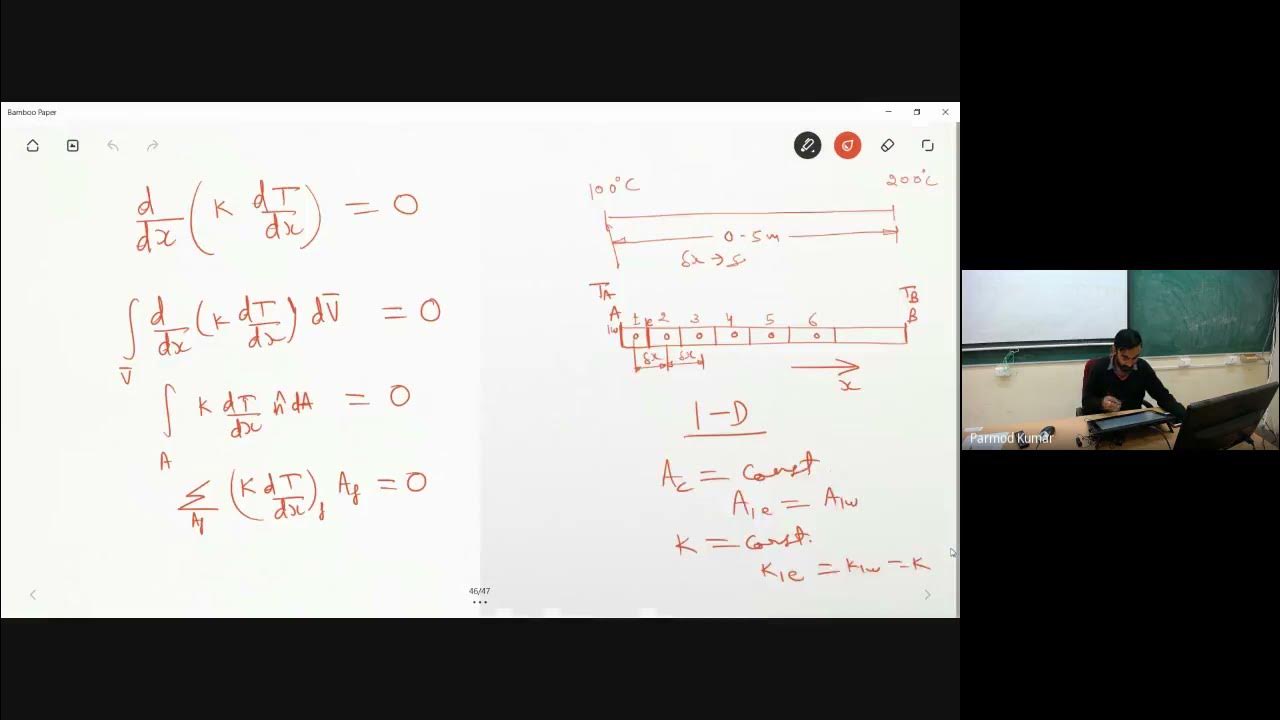 Bamboo Paper
d/dx ( K dT/dx ) = 0
∫_V̄ d/dx ( K dT/dx ) dV̄ = 0
∫_A K dT/dx n̂ dA = 0
Σ_Af ( K dT/dx )_f A_f = 0
46/47
100°C 200°C
0-5m
T_A T_B
A 1 e 2 3 4 5 6 B
1w
δx δx
x
1-D
A_c = const.
A_1e = A_1w
K = const.
K_1e = K_1w = K
Parmod Kumar